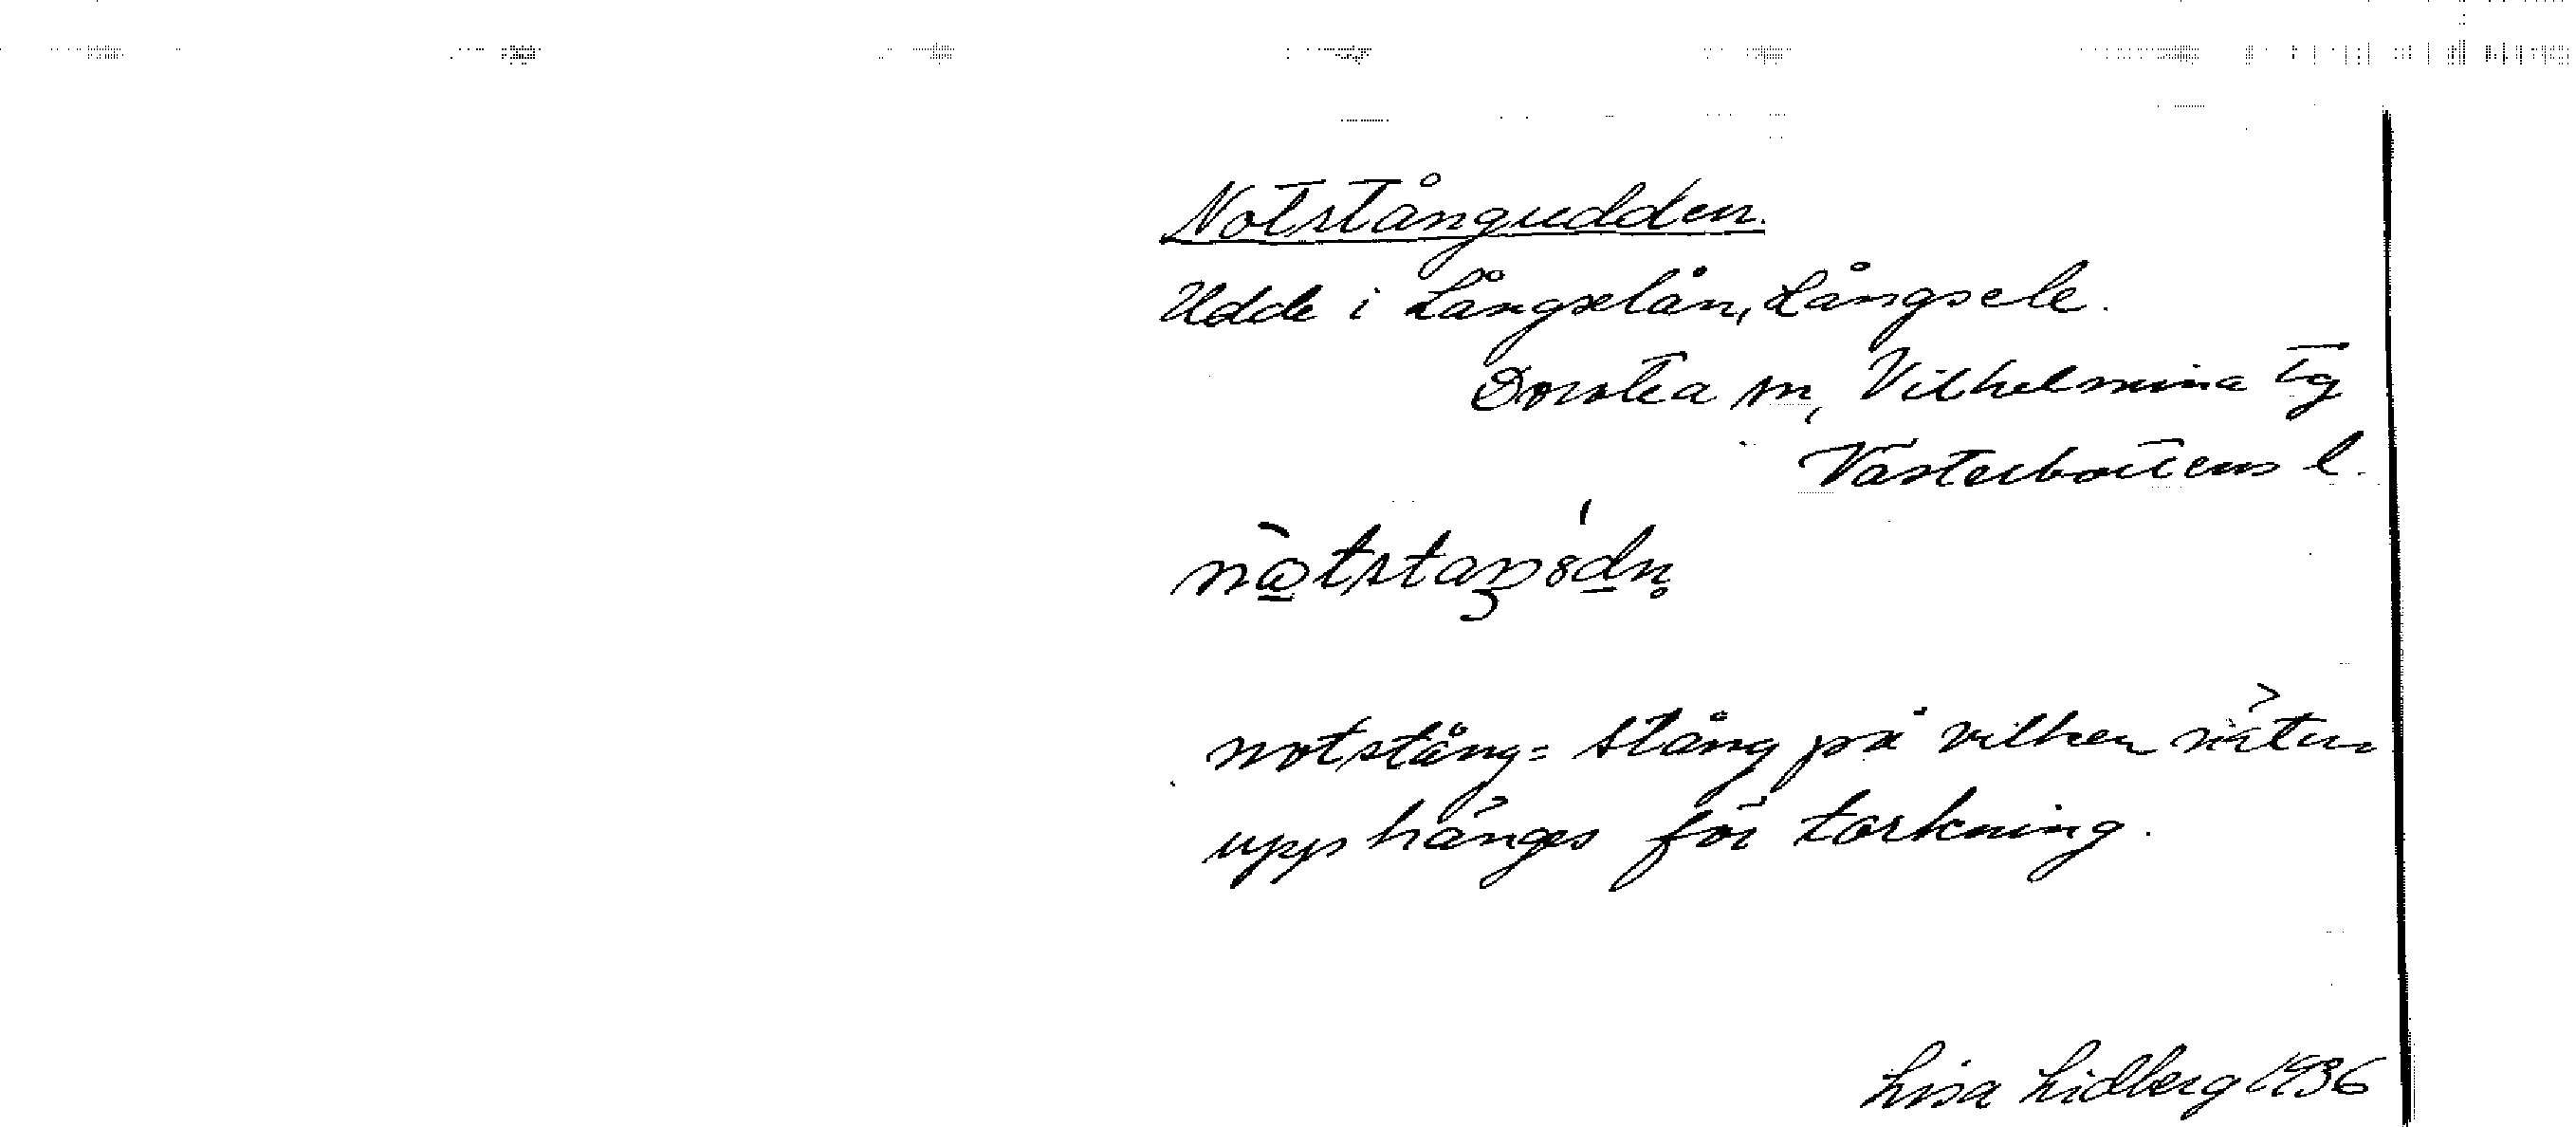 Notstångudden.
Udde i Långselån, Långsele.
Dorotea sn, Vilhelmina tg
Västerbottens l.
notstång = stång på vilken näten
upphänges för torkning.
Lisa Lidberg 1936